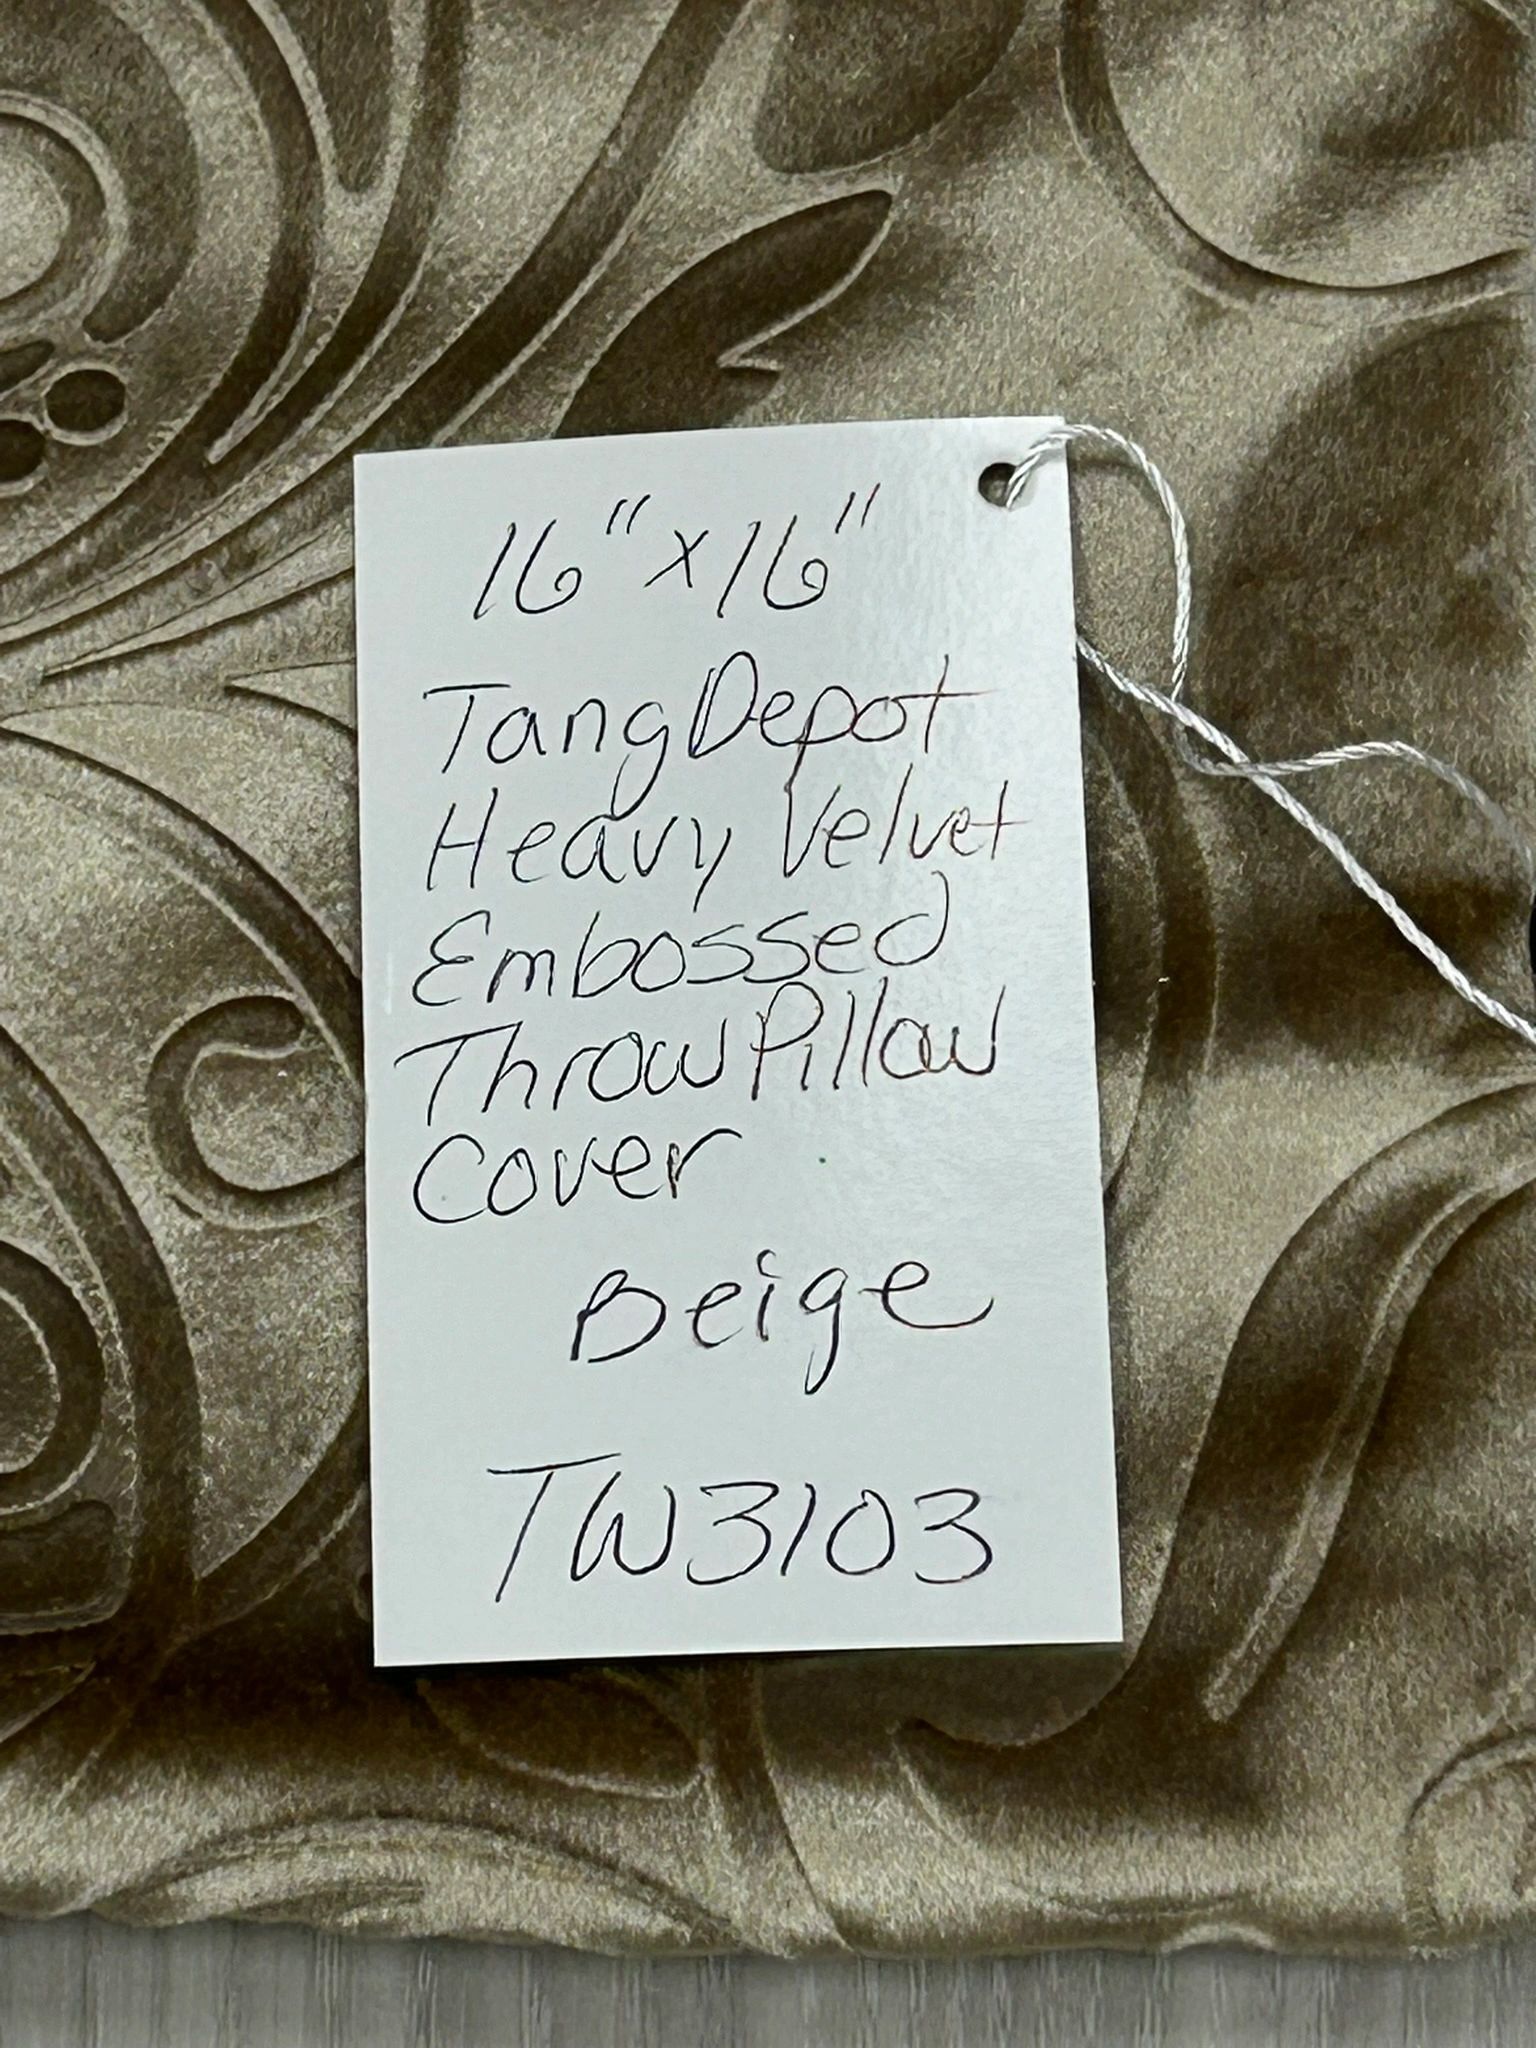 16" x 16"
TangDepot
Heavy Velvet
Embossed
Throw Pillow
Cover
Beige
TW3103